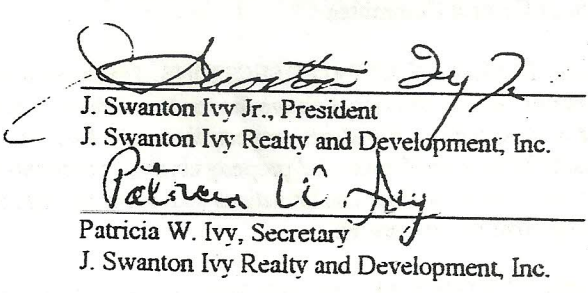 J. Swanton Ivy Jr.
J. Swanton Ivy Jr., President
J. Swanton Ivy Realty and Development, Inc.
Patricia W. Ivy
Patricia W. Ivy, Secretary
J. Swanton Ivy Realty and Development, Inc.